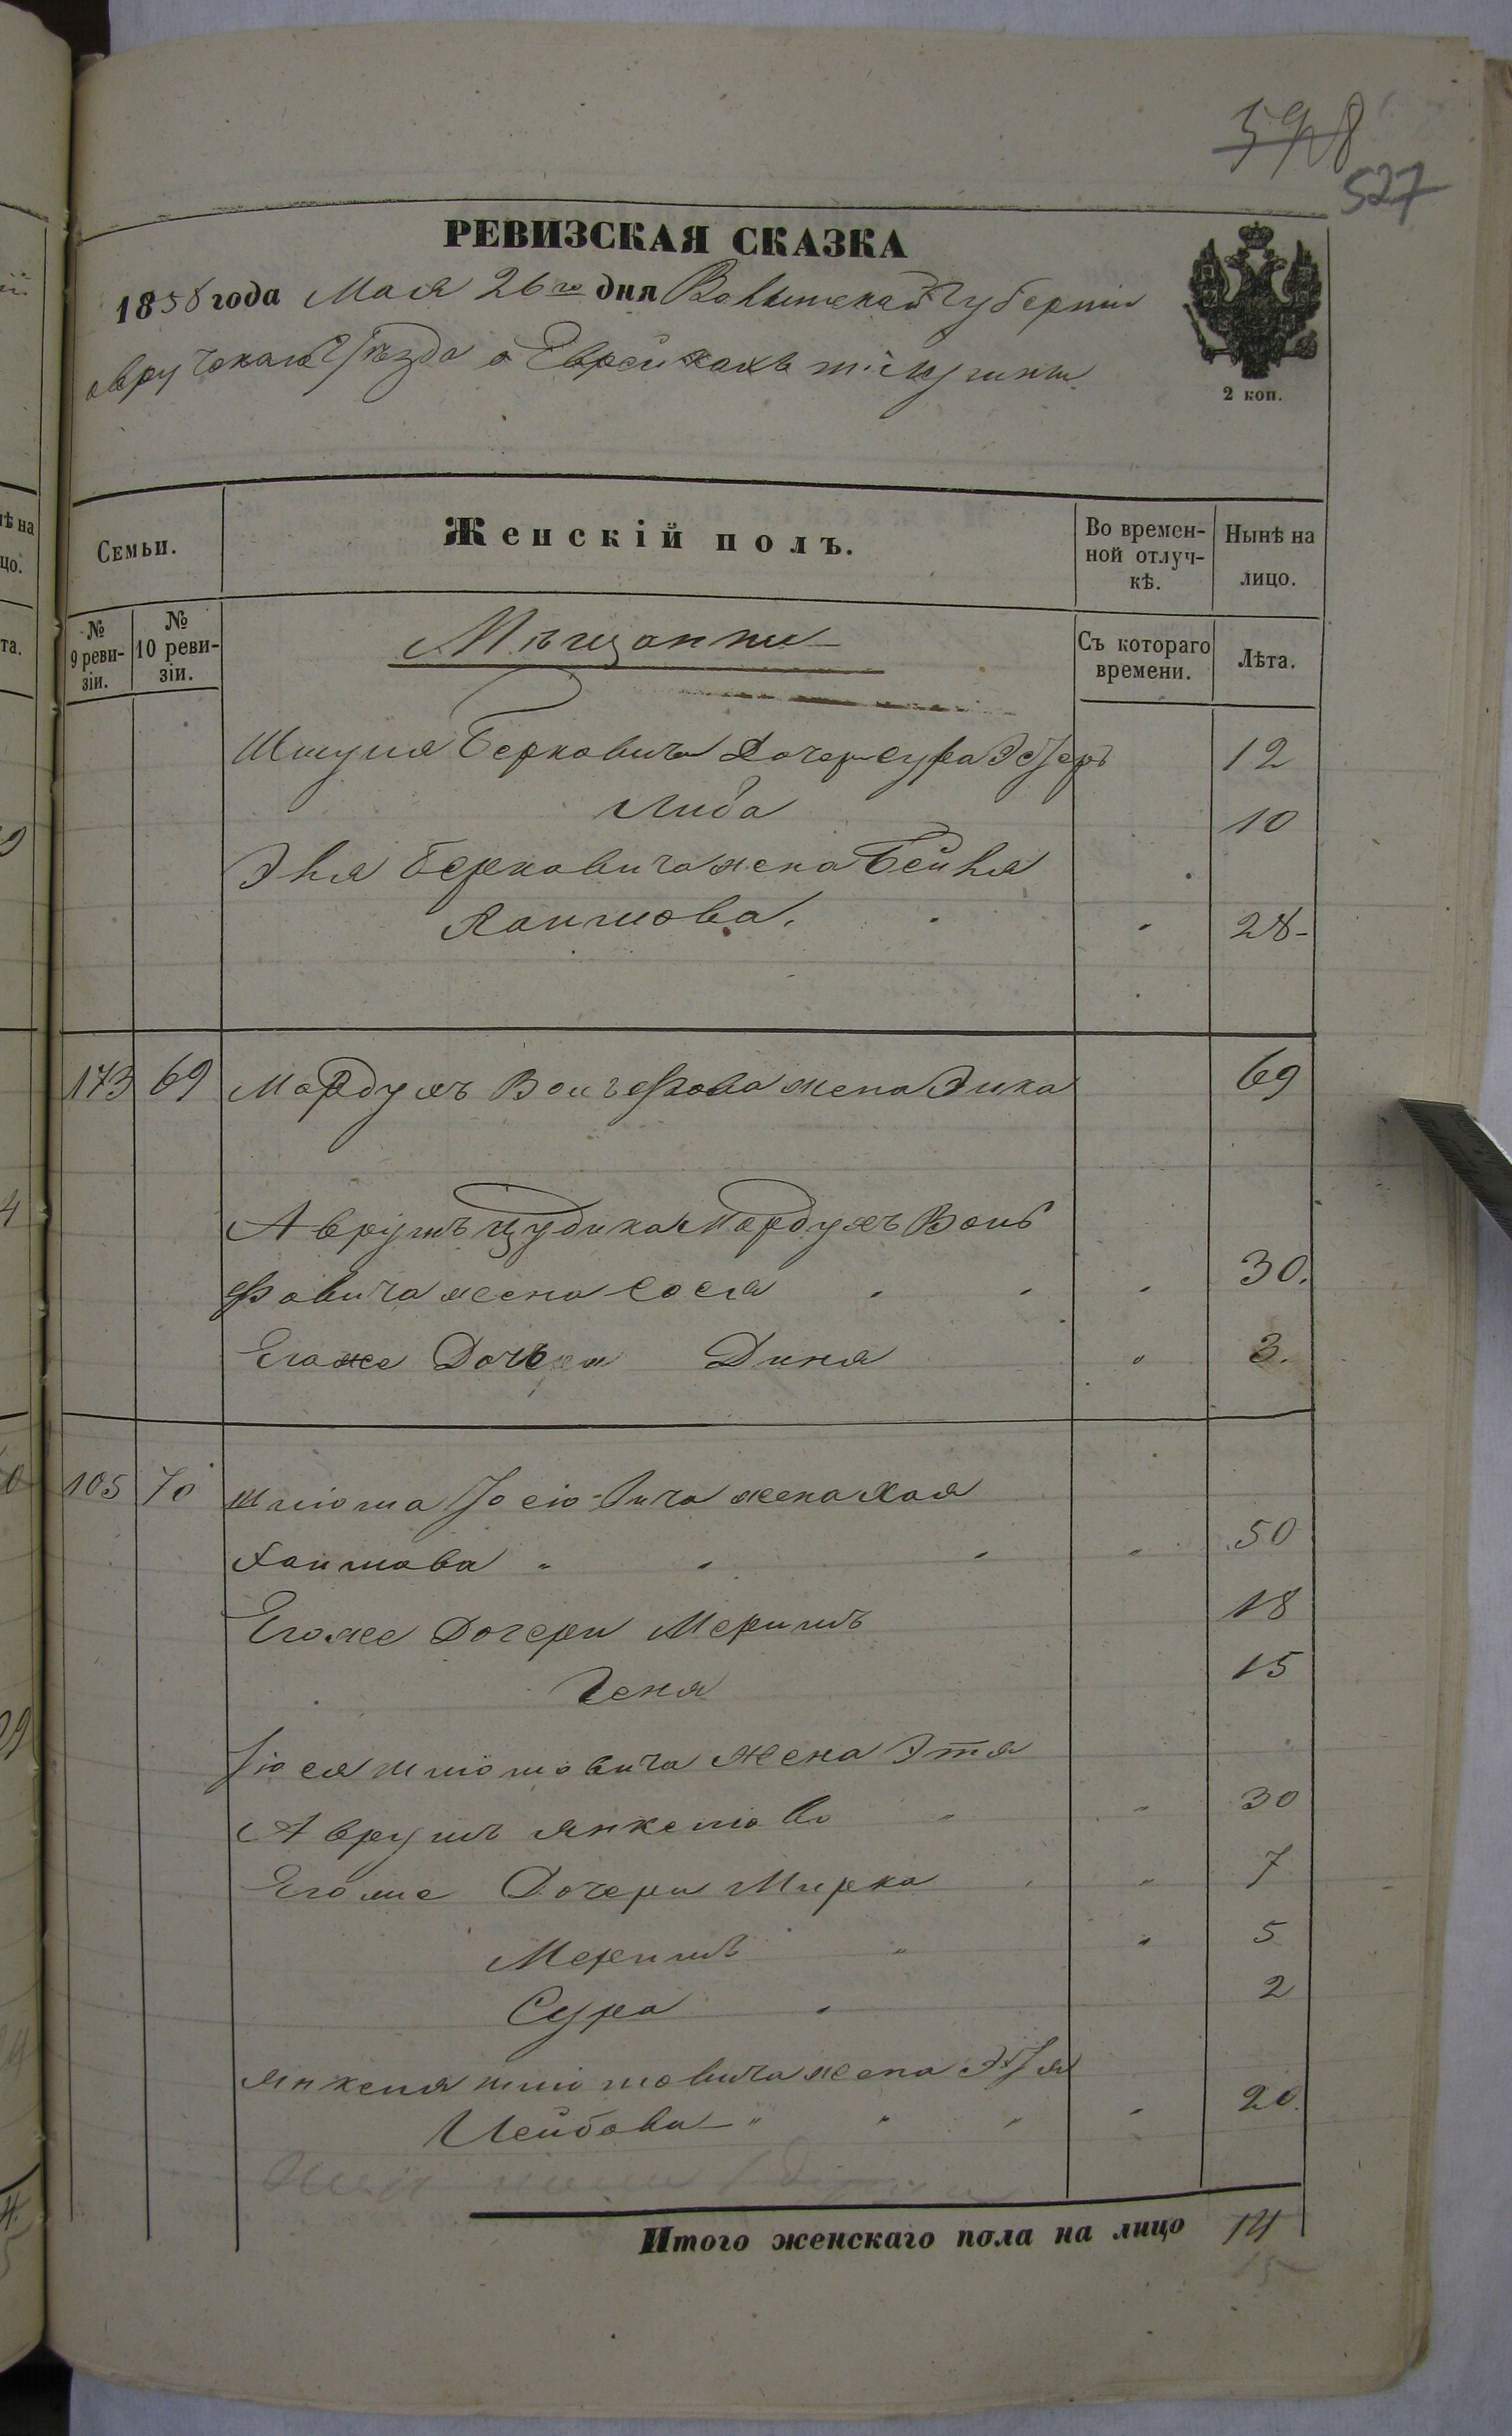 598
527
РЕВИЗСКАЯ СКАЗКА
1858 года Мая 26го дня Волынской Губерніи
овручскаго Уѣзда о Еврейкахъ м. Лугины
2 коп.
Семьи.
Женскій полъ.
Во времен-
ной отлуч-
кѣ.
Нынѣ на
лицо.
№
9 реви-
зіи.
№
10 реви-
зіи.
Мѣщанки
Съ котораго
времени.
Лѣта.
Шмуля Берковича Дочери Сура Эстеръ 12
Либа 10
Эля Берковича жена Бейля
Хаимова. 28
173 69 Мордухъ Вольфова жена Эйка 69
Аврумъ Цудика Мордухъ Воль
фовича жена Сося 30.
Егоже Дочери Диня 3.
105 70 Шлiома Iосiовича жена Хая
Хаимова 50
Егоже Дочери Меримъ 18
Геня 15
Iося Шлiомовича жена Этя
Аврумъ Янкелiова 30
Егоже Дочери Мирка 7
Меримъ 5
Сура 2
Янкеля Шлiомовича жена Этя
Лейбова 20.
Итого женскаго пола на лицо 14
15